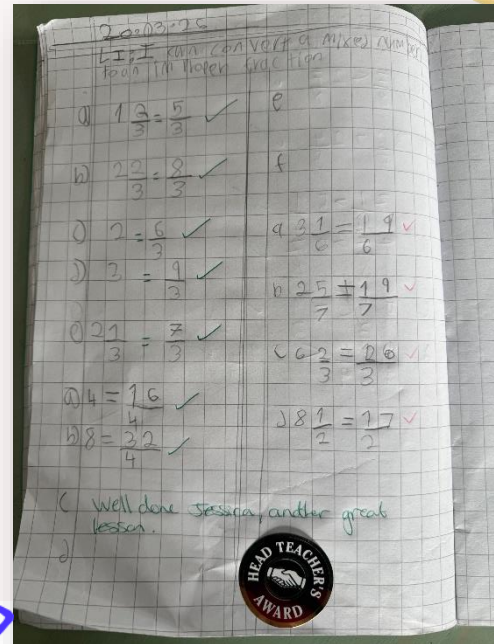 20.03.26
LI: I can convert a mixed number
to an improper fraction
a) 1 2/3 = 5/3 ✓
b) 2 2/3 = 8/3 ✓
c) 2 = 6/3 ✓
d) 3 = 9/3 ✓
e) 2 1/3 = 7/3 ✓
a) 4 = 16/4 ✓
b) 8 = 32/4 ✓
c
d
e
f
a 3 1/6 = 19/6 ✓
b 2 5/7 = 19/7 ✓
c 6 2/3 = 26/3 ✓
d 8 1/2 = 17/2 ✓
Well done Jessica, another great
lesson.
HEAD TEACHER'S
AWARD